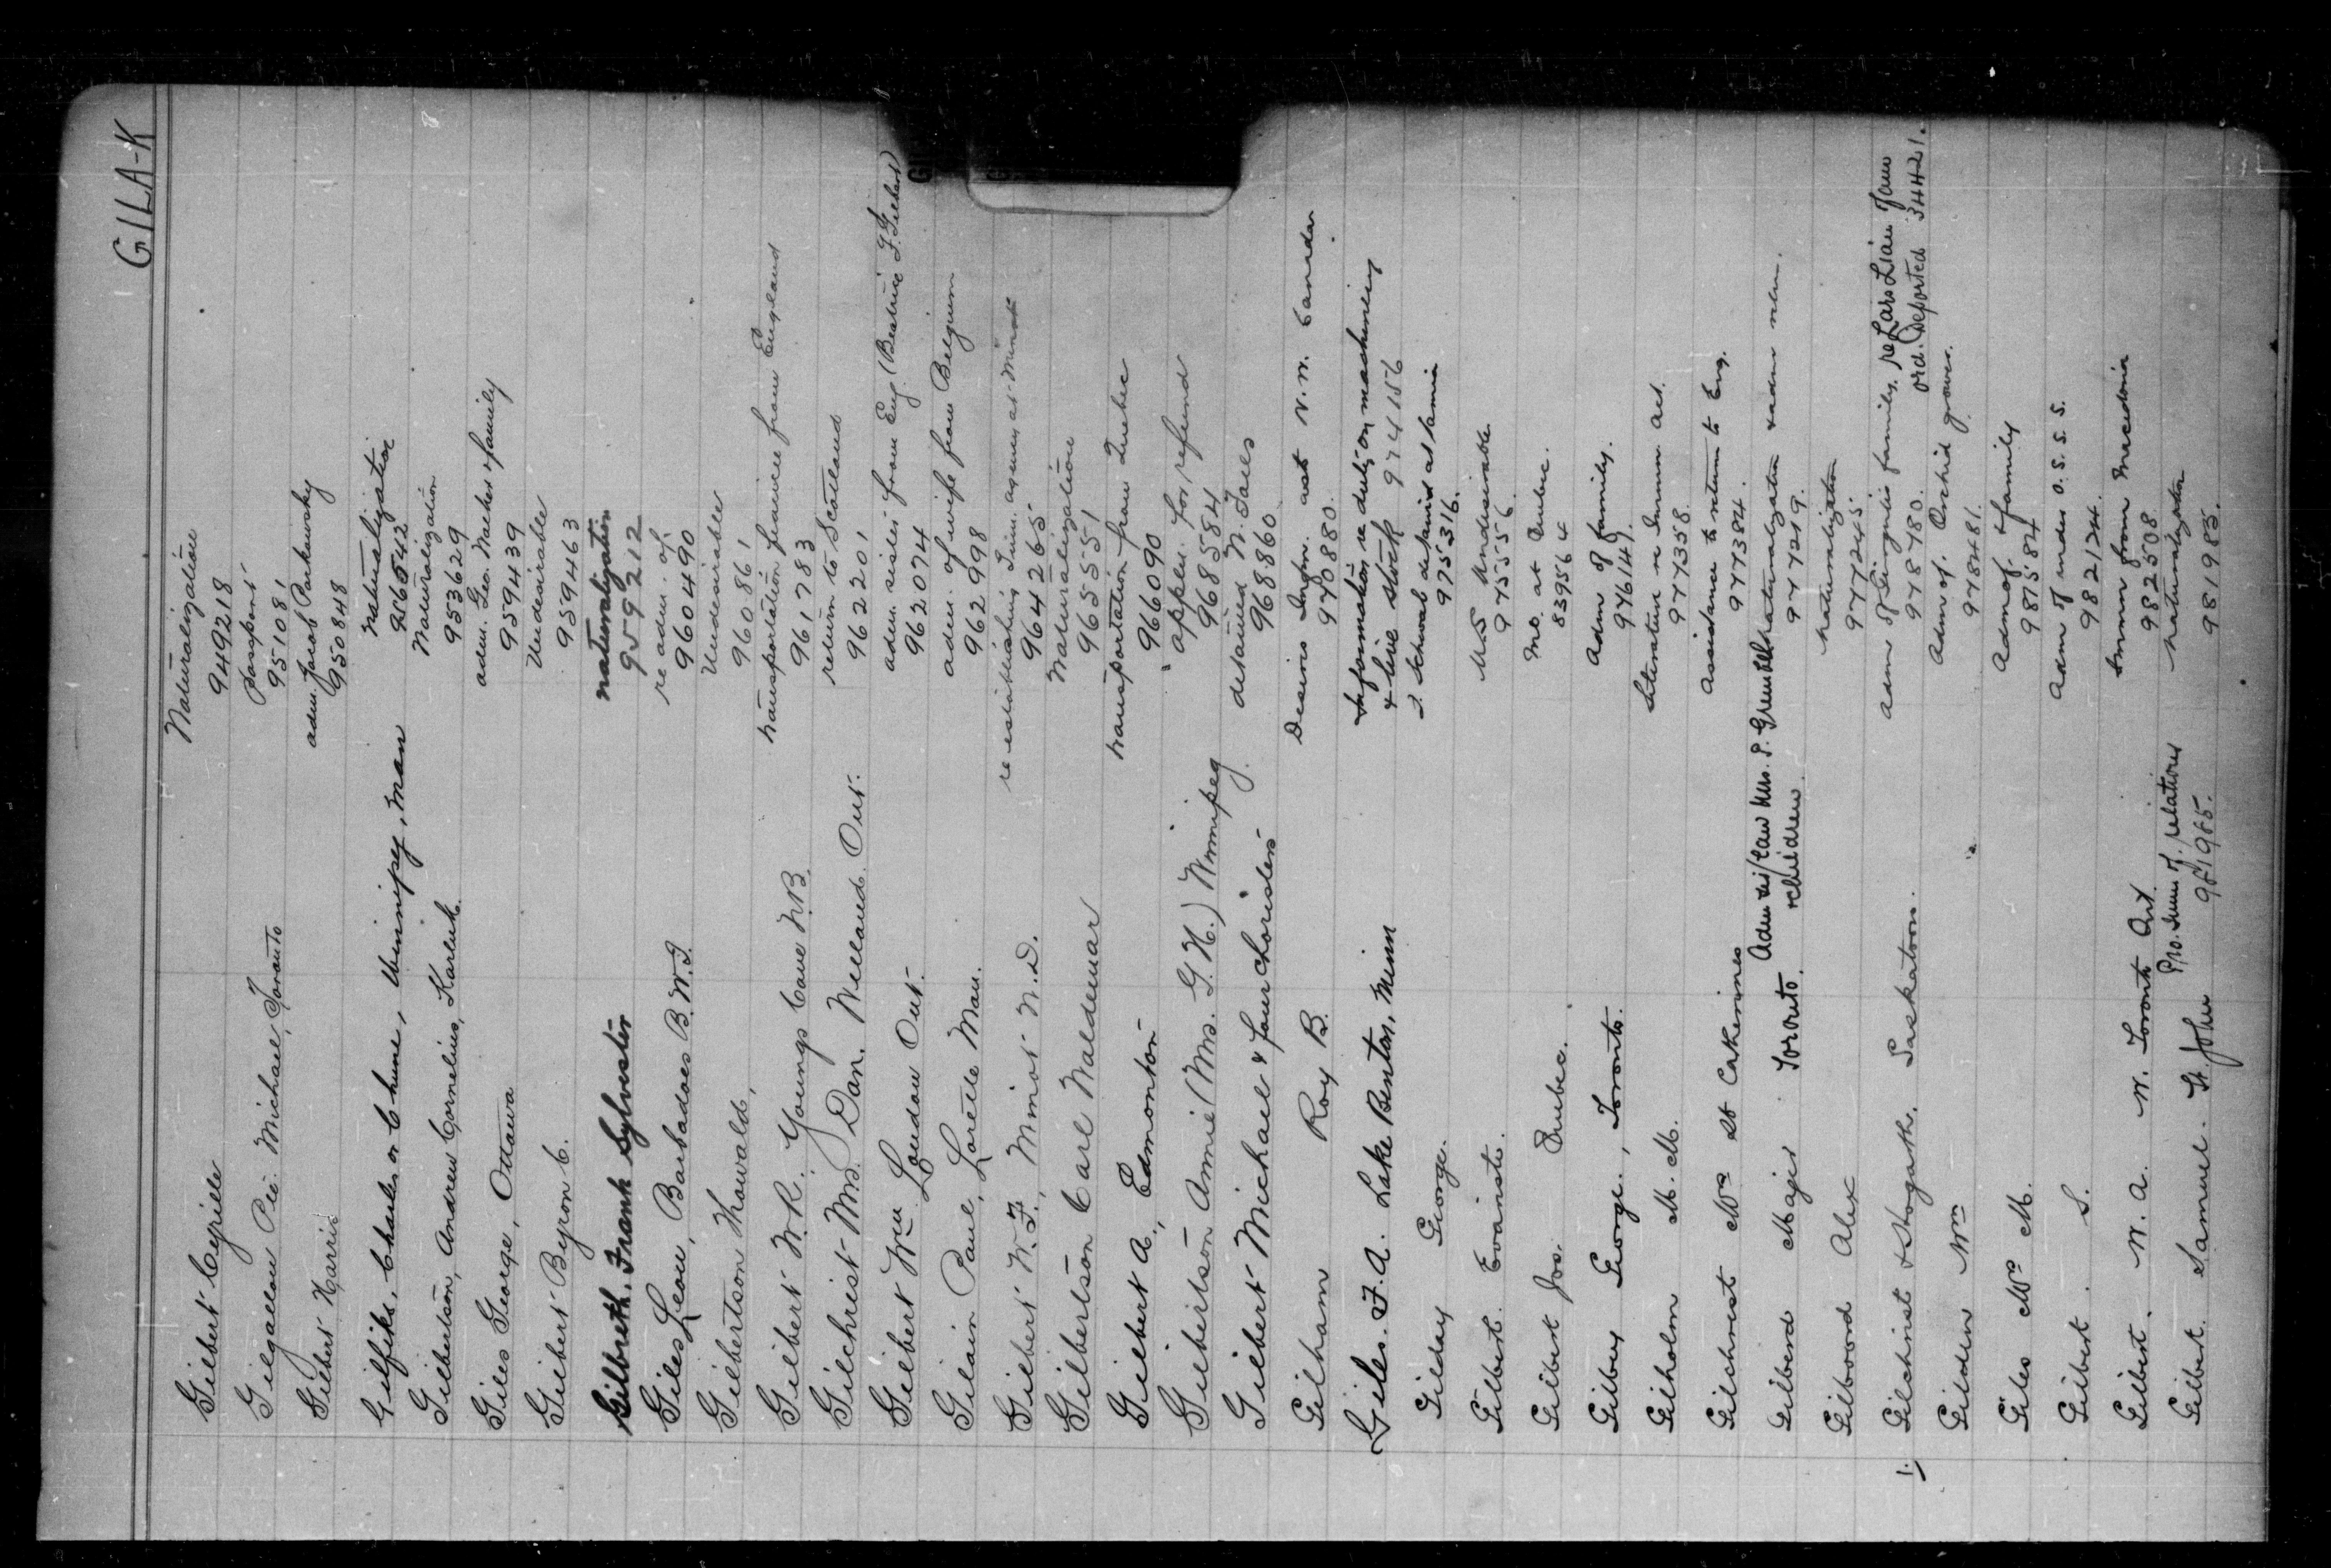 GILA-K
Gilbert Cyriele Naturalization
949218
Gilgallon Pie. Michael, Toronto Passport
951081
Gilbert Harris adm. Jacob Parkowsky
950848
Gilfiks, Charles or Chune, Winnipeg, Man Naturalization
Gilbertson, Andrew Cornelius, Naturalization
953629
Giles George, Ottawa adm. Geo. & family
959439
Gilbert Byron C. Undesirable
959463
Gilbreth. Frank Sylvester naturalization
959212
Giles Leon, Barbadoes B.W.I. re adm. of
960490
Gilbertson Thowald, Undesirable
960861
Gilbert W.R. Youngs Cove N.B. transportation from England
961783
Gilchrist Mrs. Dan. Welland. Ont. return to Scotland
962201
Gilbert Wm London Ont. adm. sister from Eng. (Beatrice F. Gilbert)
962074
Gilain Paul, Lorette Man. adm. of wife from Belgium
962998
Gilbert W.F., Minot N.D. re establishing Imm. agency at Minot
964265
Gilbertson Carl Waldemar Naturalization
965551
Gilbert A., Edmonton transportation from Quebec
966090
Gilbertson Annie (Mrs. G.H.) Winnipeg appln. for refund
968584
Gilbert Michael & four choristers detained N.
968860
Gilham Roy B. Desires Infn. as to N.W. Canada
970880.
Giles. F.A. Lake Benton, Minn Information re duty on machinery
& live stock 974156
Gilday George. J. Schwab detained at
975316.
Gilbert. Evariste. Undesirable
975556.
Gilbert Jos. Quebec. Mo. at Quebec.
839564
Gilbey George., Toronto. Adm of family.
976149.
Gilholm M. M. Literature re Immn. act.
977358.
Gilchrest Mrs St Catherines Assistance to return to Eng.
977384.
Gilberd Major Toronto. Adm sis/law Mrs. P. Naturalization & adm
& children 977429.
Gilboord Alex Naturalization
977245.
1. Gilchrist & Hogarth. Saskatoon. Adm of family. re Lars
978780. ord. Deported 344421.
Gilden Wm Adm of. Orchid grower.
978481.
Giles Mrs M. Adm of. family
981584
Gilbert. S. Adm of under O.S.S.S.
982124.
Gilbert. W. A. W. Toronto Ont Immn from Macedonia
982508
Gilbert. Samuel. St. John Pro. Imm of. relations Naturalization
981985. 981985.